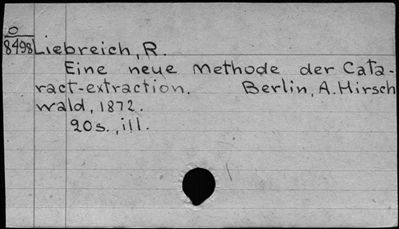 O
8498 Liebreich, R.
Eine neue Methode der Cata-
ract-extraction. Berlin, A. Hirsch
wald, 1872.
20s., ill.